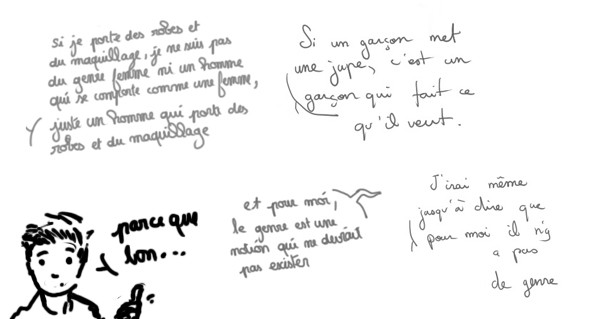 si je porte des robes et
du maquillage, je ne suis pas
du genre femme ni un homme
qui se comporte comme une femme,
juste un homme qui porte des
robes et du maquillage
Si un garçon met
une jupe, c'est un
garçon qui fait ce
qu'il veut.
parce que
bon...
et pour moi,
le genre est une
notion qui ne devrait
pas exister
J'irai même
jusqu'à dire que
pour moi il n'y
a pas
de genre